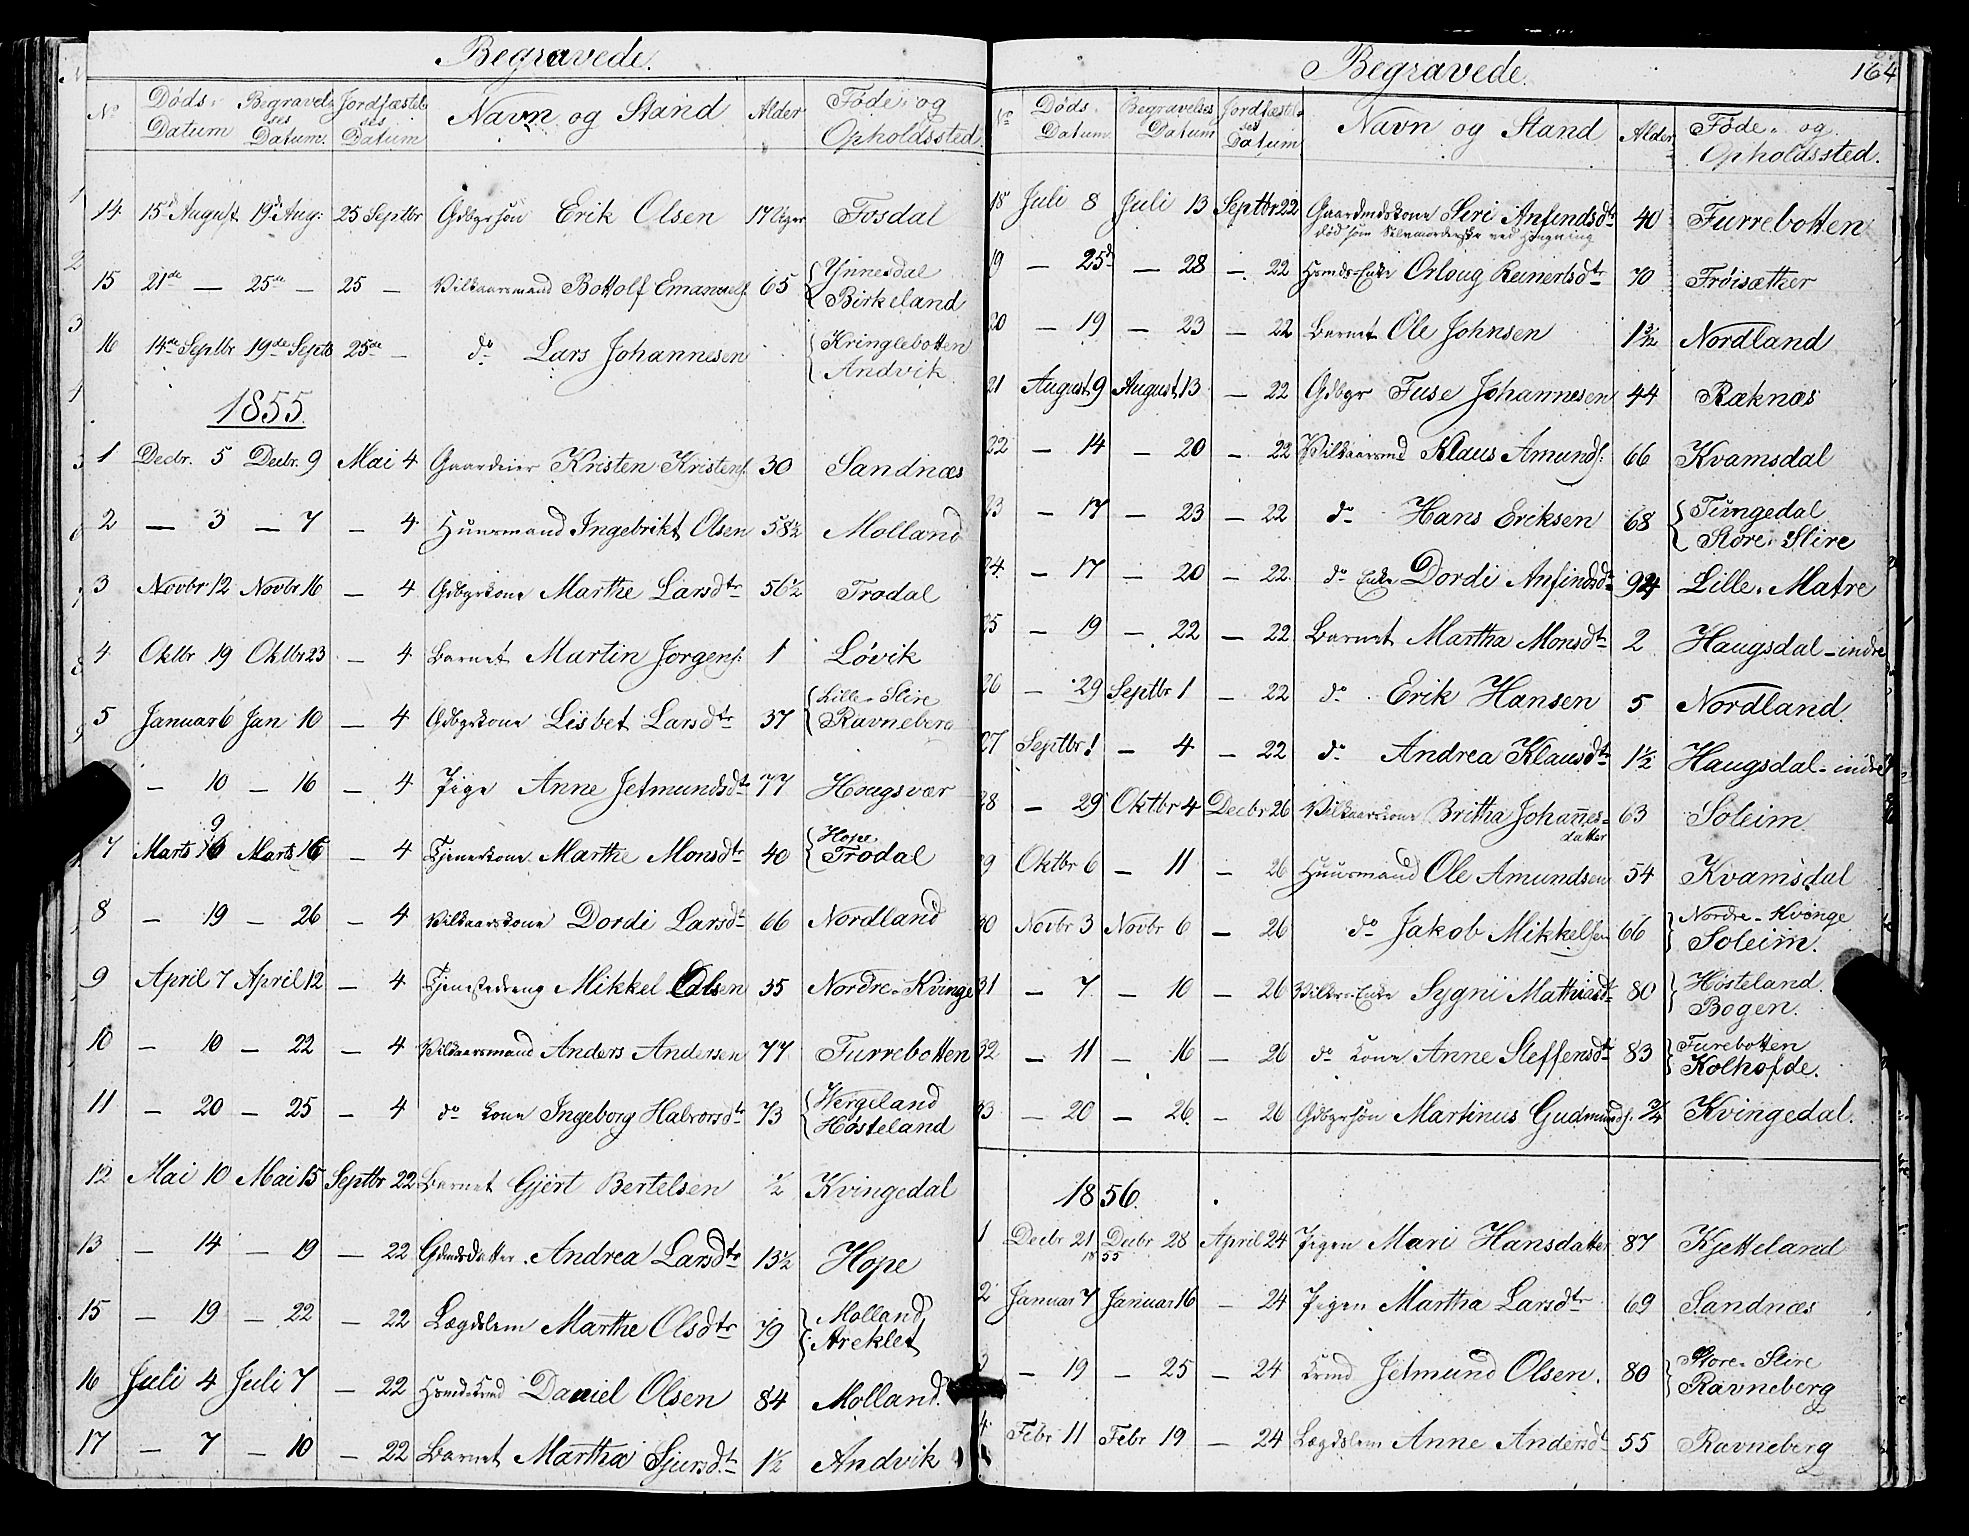 Begravede.
No Døds- Datum Begravelses Datum. Jordfæstelses Datum Navn og Stand Alder Føde- og Opholdssted.
14 15de August 19de Aug: 25 Septbr Gdbgrsøn Erik Olsen 17 Uger Fosdal
15 21de — 25de — 25 — Vilkaarsmand Bottolf Emanuels. 65 Ynnesdal
Birkeland
16 14de Septbr 19de Septb 25de — do Lars Johannesen Kringlebotten
Andvik
1855.
1 Decbr. 5 Decbr. 9 Mai 4 Gaardeier Kristen Kristens. 30 Sandnæs
2 — 3 — 7 — 4 Huusmand Ingebrikt Olsen 58½ Molland
3 Novbr 12 Novbr 16 — 4 Gdbgrkone Marthe Larsdtr 56½ Trodal
4 Oktbr 19 Oktbr 23 — 4 Barnet Martin Jørgens. 1 Løvik
5 Januar 6 Jan 10 — 4 Gdbgrkone Lisbet Larsdtr 37 Lille-Slire
Ravneberg
— 10 — 16 — 4 Pige Anne Jetmundsdtr 77 Hougsvær
9
7 Marts 16 Marts 16 — 4 Tjenerkone Marthe Monsdtr 40 Hope
Trodal
8 — 19 — 26 — 4 Vilkaarskone Dordi Larsdtr 66 Nordland
9 April 7 April 12 — 4 Tjenestedreng Mikkel Olsen 35 Nordre-Kvinge
10 — 10 — 22 — 4 Vilkaarsmand Anders Andersen 77 Furrebotten
11 — 20 — 25 — 4 do kone Ingeborg Halvorsdtr 73 Wergeland
Høsteland
12 Mai 10 Mai 15 Septbr 22 Barnet Gjert Bertelsen ½ Kvingedal
13 — 14 — 19 — 22 Gdmdsdatter Andrea Larsdtr 13½ Hope
15 — 19 — 22 — 22 Lægdslem Marthe Olsdtr 79 Molland
Areklet
16 Juli 4 Juli 7 — 22 Daniel Olsen 84 Molland.
17 — 7 — 10 — 22 Barnet Martha Sjursdtr 1½ Andvik
Begravede. 164
No Døds- Datum. Begravelses Datum Jordfæstelses Datum Navn og Stand Alder Føde- og Opholdssted.
18 Juli 8 Juli 13 Septbr 22 Gaardmdskone Siri Anfindsdtr 40 Furrebotten
død som Selvmorderske ved Hængning
19 — 25d — 28 — 22 Husmds-Enke Orloug Reinertsdtr 70 Frøisæther
20 — 19 — 23 — 22 Barnet Ole Johnsen Nordland
21 August 9 August 13 — 22 Gdbgr Fuse Johannesen 44 Ræknæs
22 — 14 — 20 — 22 Vilkaarsmd Klaus Amunds. 66 Kvamsdal
23 — 17 — 23 — 22 do Hans Eriksen 68 Tungedal
Store-Slire
24. — 17 — 20 — 22. do Enke Dordi Anfindsdtr 94 Lille-Matre
25 — 19 — 22 — 22 Barnet Martha Monsdtr 2 Haugsdal-indre
26 — 29 Septbr 1 — 22 do Erik Hansen 5 Nordland.
27 Septbr 1 — 4 — 22 do Andrea Klausdtr 1½ Haugsdal-indre
28 — 29 Oktbr 4 Decbr 26 Vilkaarskone Britha Johannes-
datter 63 Soleim
29 Oktbr 6 — 11 — 26 Huusmand Ole Amundsen 54 Kvamsdal
30 Novbr 3 Novbr 6 — 26 do Jakob Mikkelsen 66 Nordre-Kvinge
Soleim.
31 — 7 — 10 — 26 Vilkrs-Enke Sygni Mathiasdtr 80 Høsteland.
Bogen.
32 — 11 — 16 — 26 do Kone Anne Steffensdtr 83 Furebotten
Kolhofde.
33 — 20 — 26 — 26 Gdbgrsøn Martinus Gudmunds. ¾ Kvingedal.
1856.
1 Decbr 21 Decbr 28 April 24 Pigen Mari Hansdatter 87 Kjetteland
1855
2 Januar 7 Januar 16 — 24 Pigen Martha Larsdtr 69 Sandnæs
3 — 19 — 25 — 24 Jetmund Olsen. 80 Store-Slire
Ravneberg
4 Febr 11 Febr 19 — 24 Lægdslem Anne Andersdtr 55 Ravneberg